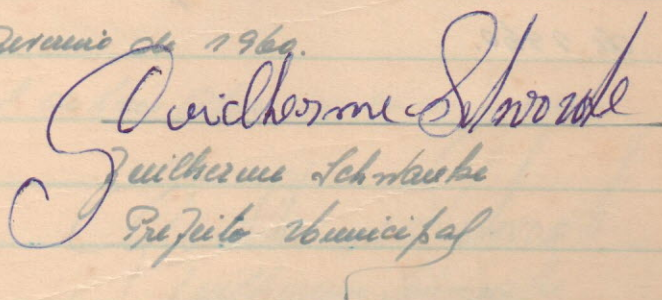 de 1960.
Guilherme Schwanke
Guilherme Schwanke
Prefeito Municipal